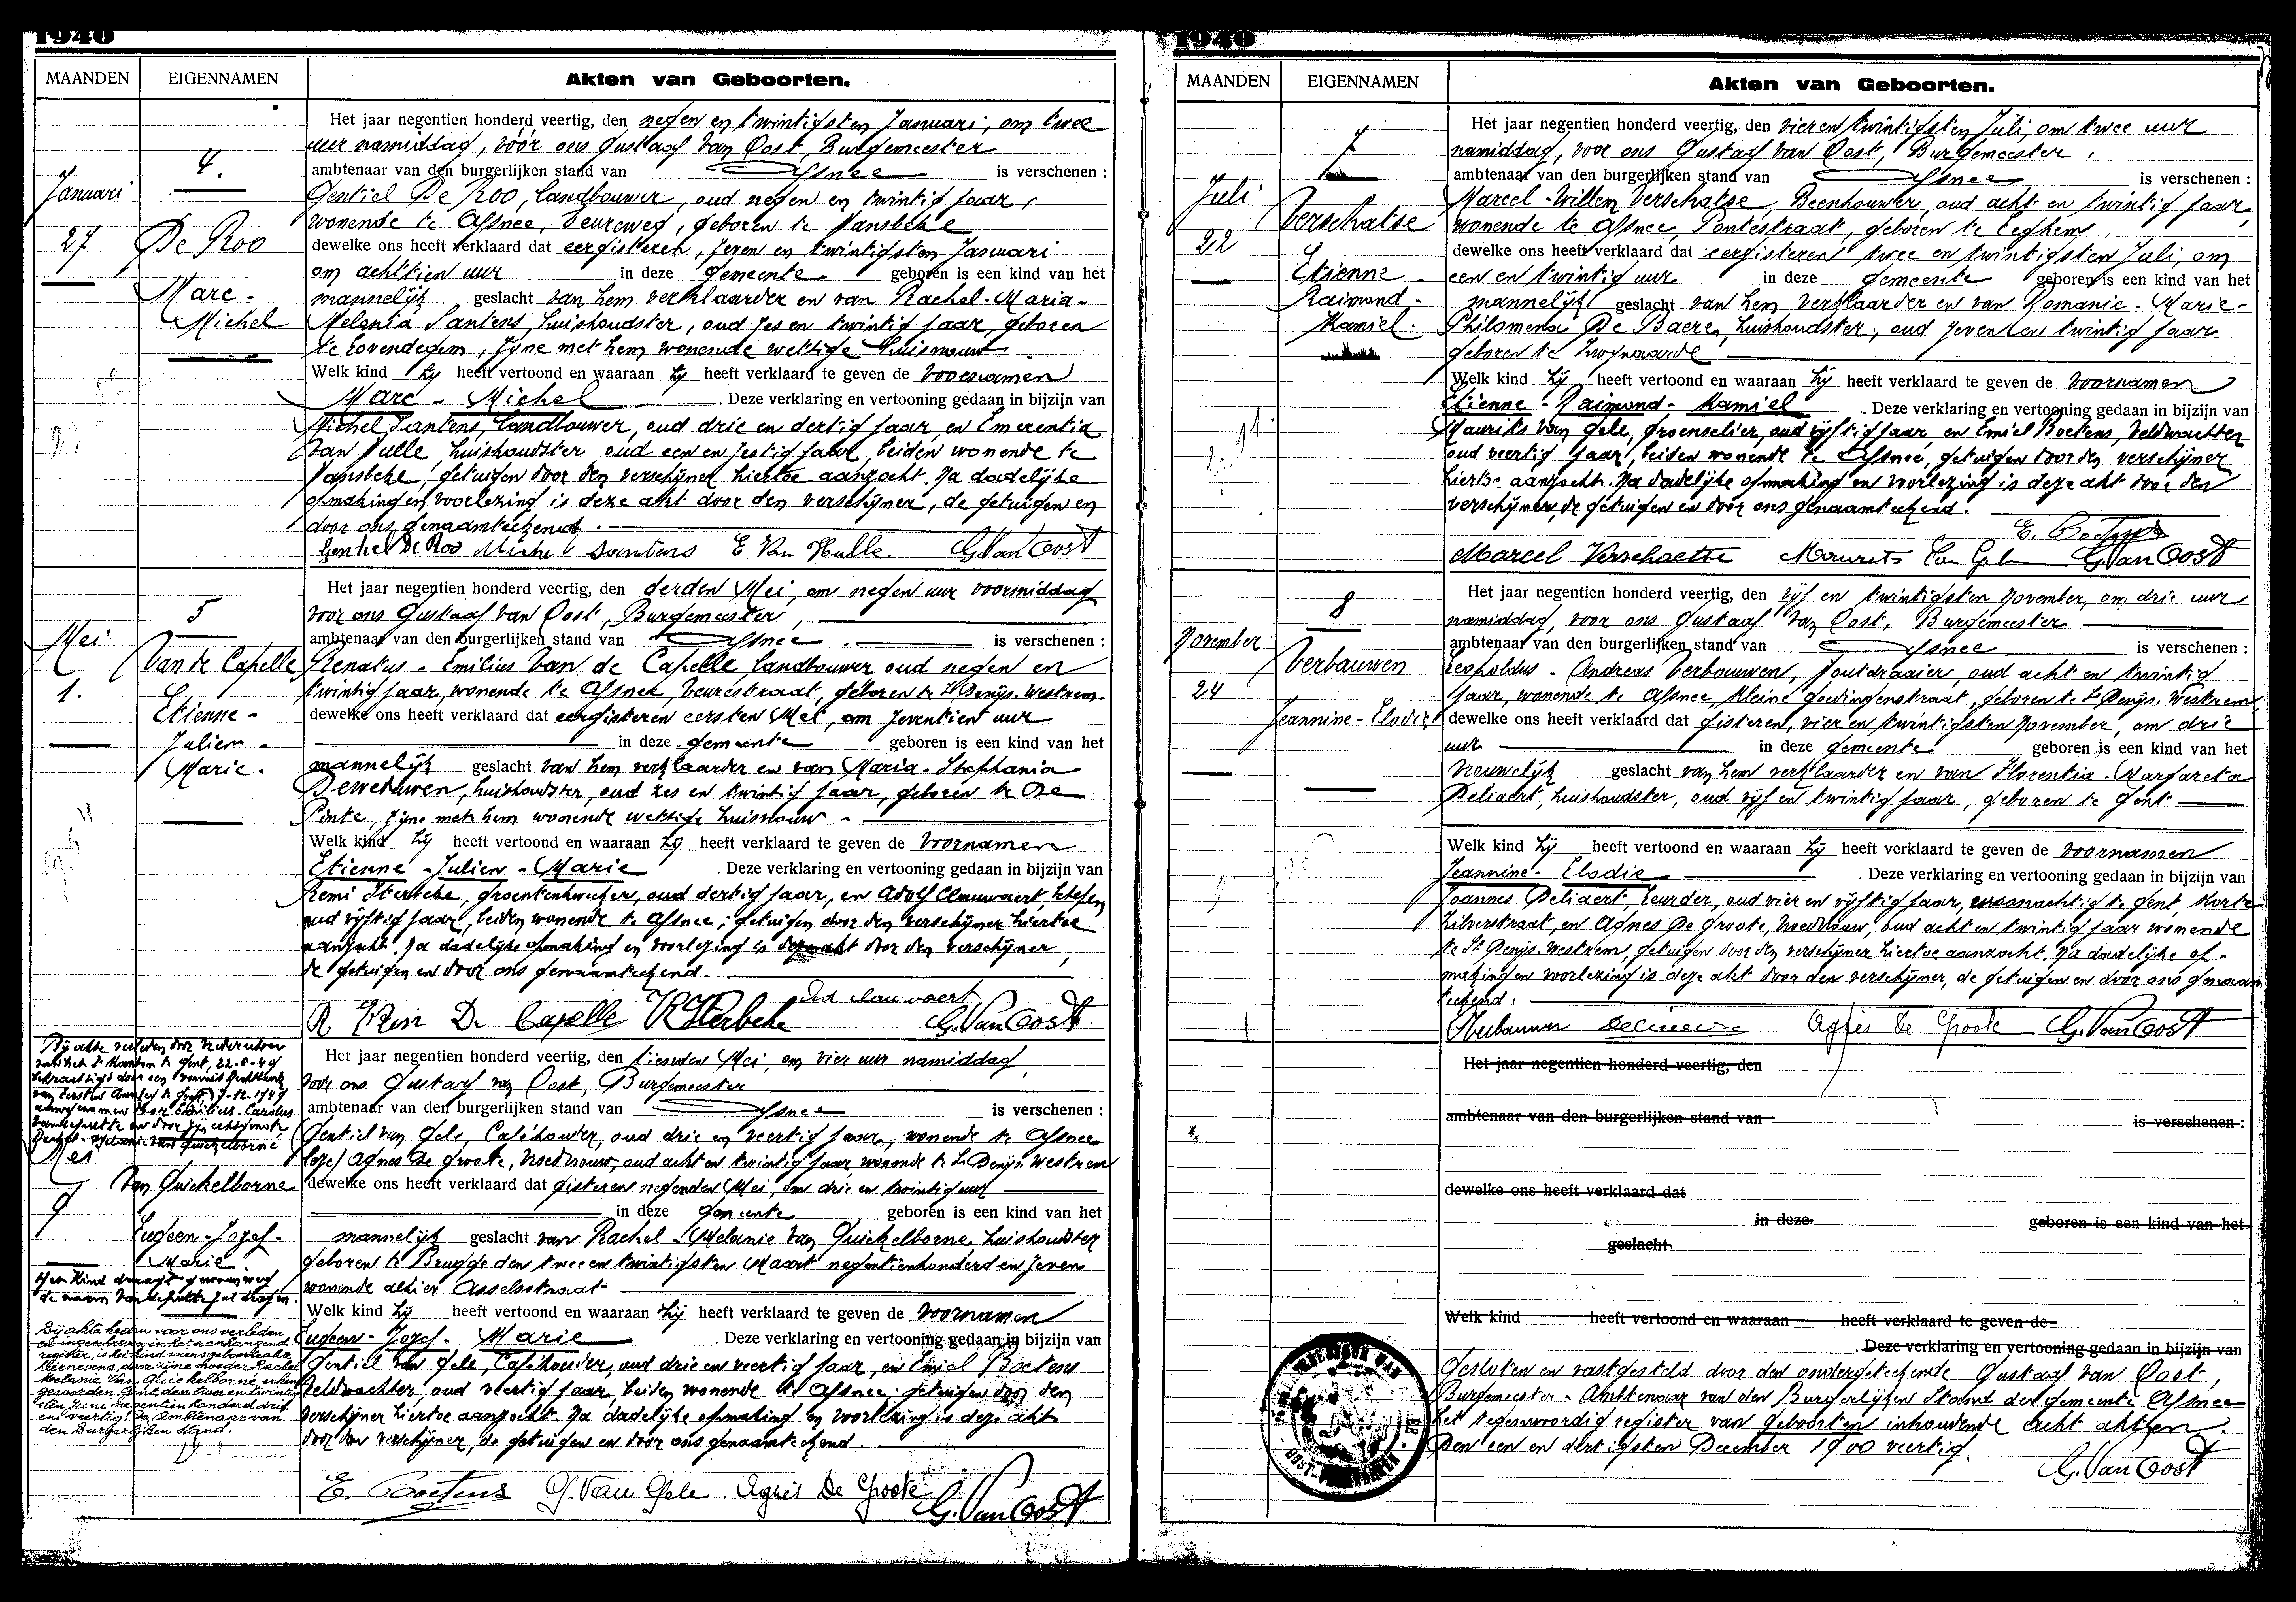 1940
MAANDEN EIGENNAMEN Akten van Geboorten.
Het jaar negentien honderd veertig, den negen en twintigsten Januari, om twee
uur namiddag, vóór ons Gustaaf Van Oost, Burgemeester
4.
ambtenaar van den burgerlijken stand van Afsnee is verschenen :
Januari
Gentiel De Roo, landbouwer, oud negen en twintig jaar,
wonende te Afsnee, Veureweg, geboren te Hansbeke
27 De Roo
dewelke ons heeft verklaard dat eergisteren, zeven en twintigsten Januari
om achttien uur in deze gemeente geboren is een kind van het
Marc -
mannelijk geslacht van hem verklaarder en van Rachel-Maria-
Michel
Melania Santens, huishoudster, oud zes en twintig jaar, geboren
te Lovendegem, zijne met hem wonende wettige huisvrouw
Welk kind hij heeft vertoond en waaraan hij heeft verklaard te geven de voornamen
Marc - Michel . Deze verklaring en vertooning gedaan in bijzijn van
Michel Santens, landbouwer, oud drie en dertig jaar, en Emerentia
Van Hulle huishoudster oud een en zestig jaar, beiden wonende te
Hansbeke, getuigen door den verschijner hiertoe aanzocht. Na dadelijke
opmaking en voorlezing is deze akt door den verschijner, de getuigen en
door ons genaamteekend.
Gentiel De Roo Michel Santens E Van Hulle G. Van Oost
Het jaar negentien honderd veertig, den derden Mei, om negen uur voormiddag
voor ons Gustaaf Van Oost, Burgemeester,
5
ambtenaar van den burgerlijken stand van Afsnee is verschenen :
Mei
Van de Capelle
Renatus - Emilius Van de Capelle landbouwer oud negen en
1.
twintig jaar, wonende te Afsnee, Veurestraat, geboren te St Denijs. Westrem.
Etienne -
dewelke ons heeft verklaard dat eergisteren eersten Mei, om zeventien uur
Julien -
in deze gemeente geboren is een kind van het
Marie.
mannelijk geslacht van hem verklaarder en van Maria-Stephania
huishoudster, oud zes en twintig jaar, geboren te De
Pinte, zijne met hem wonende wettige huisvrouw -
Welk kind hij heeft vertoond en waaraan hij heeft verklaard te geven de voornamen
Etienne - Julien - Marie . Deze verklaring en vertooning gedaan in bijzijn van
Remi Sterbeke, groentenkweker, oud dertig jaar, en Adolf Clauwaert, schepen
oud vijftig jaar, beiden wonende te Afsnee; getuigen door den verschijner hiertoe
aanzocht. Na dadelijke opmaking en voorlezing is deze akt door den verschijner,
de getuigen en door ons genaamteekend.
Ad Clauwaert
De Capelle R Sterbeke G. Van Oost
Het jaar negentien honderd veertig, den tienden Mei, om vier uur namiddag,
voor ons Gustaaf van Oost, Burgemeester
ambtenaar van den burgerlijken stand van Afsnee is verschenen :
Gentiel van Gele, Caféhouder, oud drie en veertig jaar, wonende te Afsnee
Agnes De Groote, Vroedvrouw, oud acht en twintig jaar, wonende te St Denijs. Westrem
Mei
Van Quickelborne
9
dewelke ons heeft verklaard dat gisteren negenden Mei, om drie en twintig uur
in deze gemeente geboren is een kind van het
Eugeen-Jozef-
mannelijk geslacht van Rachel - Melanie Van Quickelborne, huishoudster
Marie
geboren te Brugge den twee en twintigsten Maart negentienhonderd en zeven
wonende alhier Asselsstraat
Welk kind hij heeft vertoond en waaraan hij heeft verklaard te geven de voornamen
Eugeen - Jozef - Marie . Deze verklaring en vertooning gedaan in bijzijn van
Gentiel Van Gele, Caféhouder, oud drie en veertig jaar, en Emiel Boetens
Veldwachter oud veertig jaar, beiden wonende te Afsnee; getuigen door den
verschijner hiertoe aanzocht. Na dadelijke opmaking en voorlezing is deze akt
door den verschijner, de getuigen en door ons genaamteekend.
Bij akte heden voor ons verleden
en ingeschreven in het aanhangend
register, is het kind wiens geboorteakte
hiernevens, door zijne moeder Rachel
Melanie Van Quickelborne, erkend
geworden. Gent, den twee en twintig
sten Juni negentien honderd drie
en veertig. De Ambtenaar van
den Burgerlijken Stand.
E. Boetens G. Van Gele Agnès De Groote G. Van Oost
1940
MAANDEN EIGENNAMEN Akten van Geboorten.
Het jaar negentien honderd veertig, den vier en twintigsten Juli, om twee uur
namiddag, voor ons Gustaaf Van Oost, Burgemeester
7
ambtenaar van den burgerlijken stand van Afsnee is verschenen :
Juli
Verschatse
Marcel-Willem Verschatse, Beenhouwer, oud acht en twintig jaar,
wonende te Afsnee, Pontestraat, geboren te
22
dewelke ons heeft verklaard dat eergisteren twee en twintigsten Juli, om
Etienne -
een en twintig uur in deze gemeente geboren is een kind van het
Raimond -
mannelijk geslacht van hem verklaarder en van Romanie - Marie-
Kamiel.
Philomena De Baere, huishoudster, oud zeven en twintig jaar
geboren te Zwijnaarde
Welk kind hij heeft vertoond en waaraan hij heeft verklaard te geven de voornamen
Etienne - Raimond - Kamiel . Deze verklaring en vertooning gedaan in bijzijn van
Maurits Van Gele, groenselier, oud vijftig jaar en Emiel Boetens, Veldwachter
oud veertig jaar, beiden wonende te Afsnee, getuigen door den verschijner
hiertoe aanzocht. Na dadelijke opmaking en voorlezing is deze akt door den
verschijner, de getuigen en door ons genaamteekend.
E. Boetens
Marcel Verschaetse Maurits Van Gele G. Van Oost
Het jaar negentien honderd veertig, den vijf en twintigsten November, om drie uur
namiddag, voor ons Gustaaf Van Oost, Burgemeester
8
ambtenaar van den burgerlijken stand van Afsnee is verschenen :
November
Verbauwen
Leopoldus - Andreas Verbouwen, oud acht en twintig
24
jaar, wonende te Afsnee, Kleine Goedingenstraat, geboren te St Denijs. Westrem
Jeannine - Elodie
dewelke ons heeft verklaard dat gisteren, vier en twintigsten November, om drie
uur in deze gemeente geboren is een kind van het
vrouwelijk geslacht van hem verklaarder en van Florentia - Margareta
Deliaert, huishoudster, oud vijf en twintig jaar, geboren te Gent
Welk kind hij heeft vertoond en waaraan hij heeft verklaard te geven de voornamen
Jeannine - Elodie . Deze verklaring en vertooning gedaan in bijzijn van
Joannes Deliaert, Leurder, oud vier en vijftig jaar, woonachtig te Gent, Korte
Zilverstraat, en Agnes De Groote, Vroedvrouw, oud acht en twintig jaar wonende
te St Denijs. Westrem, getuigen door den verschijner hiertoe aanzocht. Na dadelijke op-
making en voorlezing is deze akt door den verschijner, de getuigen en door ons genaam
teekend.
Agnès De Groote G. Van Oost
Het jaar negentien honderd veertig, den
ambtenaar van den burgerlijken stand van is verschenen :
dewelke ons heeft verklaard dat
in deze geboren is een kind van het
geslacht
Welk kind heeft vertoond en waaraan heeft verklaard te geven de
. Deze verklaring en vertooning gedaan in bijzijn van
Gesloten en vastgesteld door den ondergeteekende Gustaaf van Oost,
Burgemeester - Ambtenaar van den Burgerlijken Stand der gemeente Afsnee
het tegenwoordig register van geboorten inhoudende acht akten.
Den een en dertigsten December 1900 veertig.
G. Van Oost